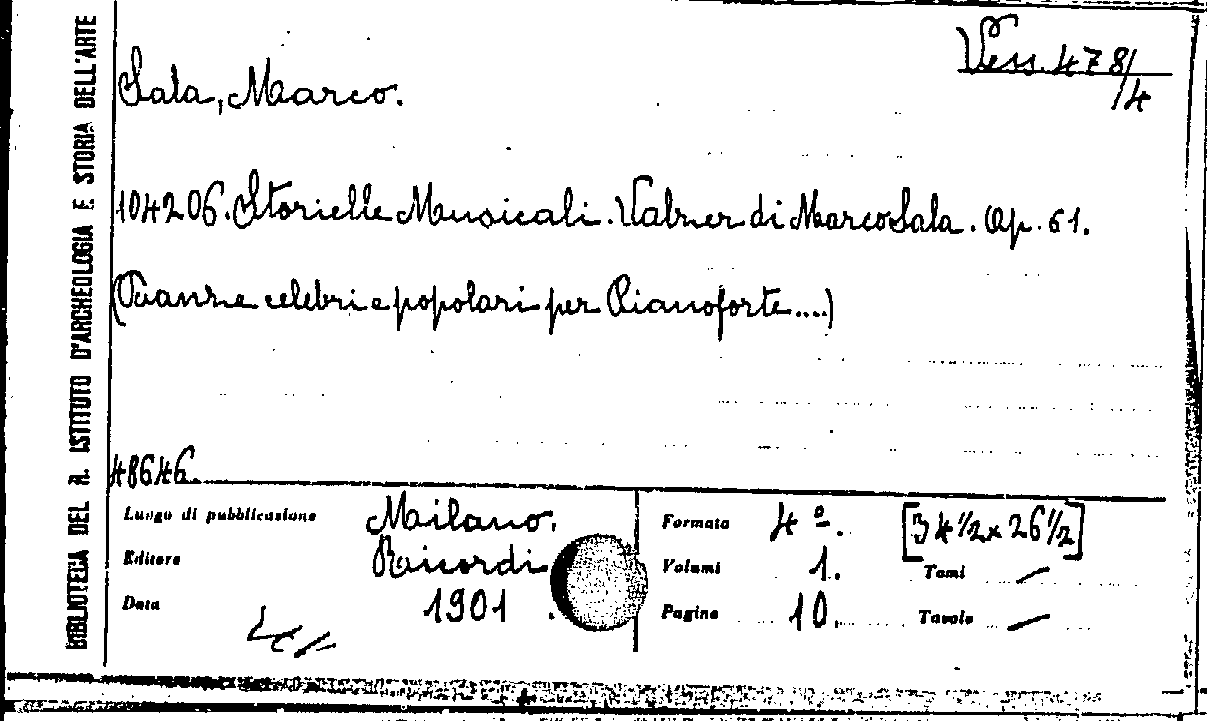 BIBLIOTECA DEL R. ISTITUTO D'ARCHEOLOGIA E STORIA DELL'ARTE
Vess. 478/4
Sala, Marco.
104206. Storielle Musicali. Valzer di Marco Sala. Op. 61.
(Danze celebri e popolari per Pianoforte....)
48646.
Luogo di pubblicazione Milano.
Editore Ricordi
Data 1901
Formato 4º. [34½ x 26½]
Volumi 1. Tomi —
Pagine 10. Tavole —